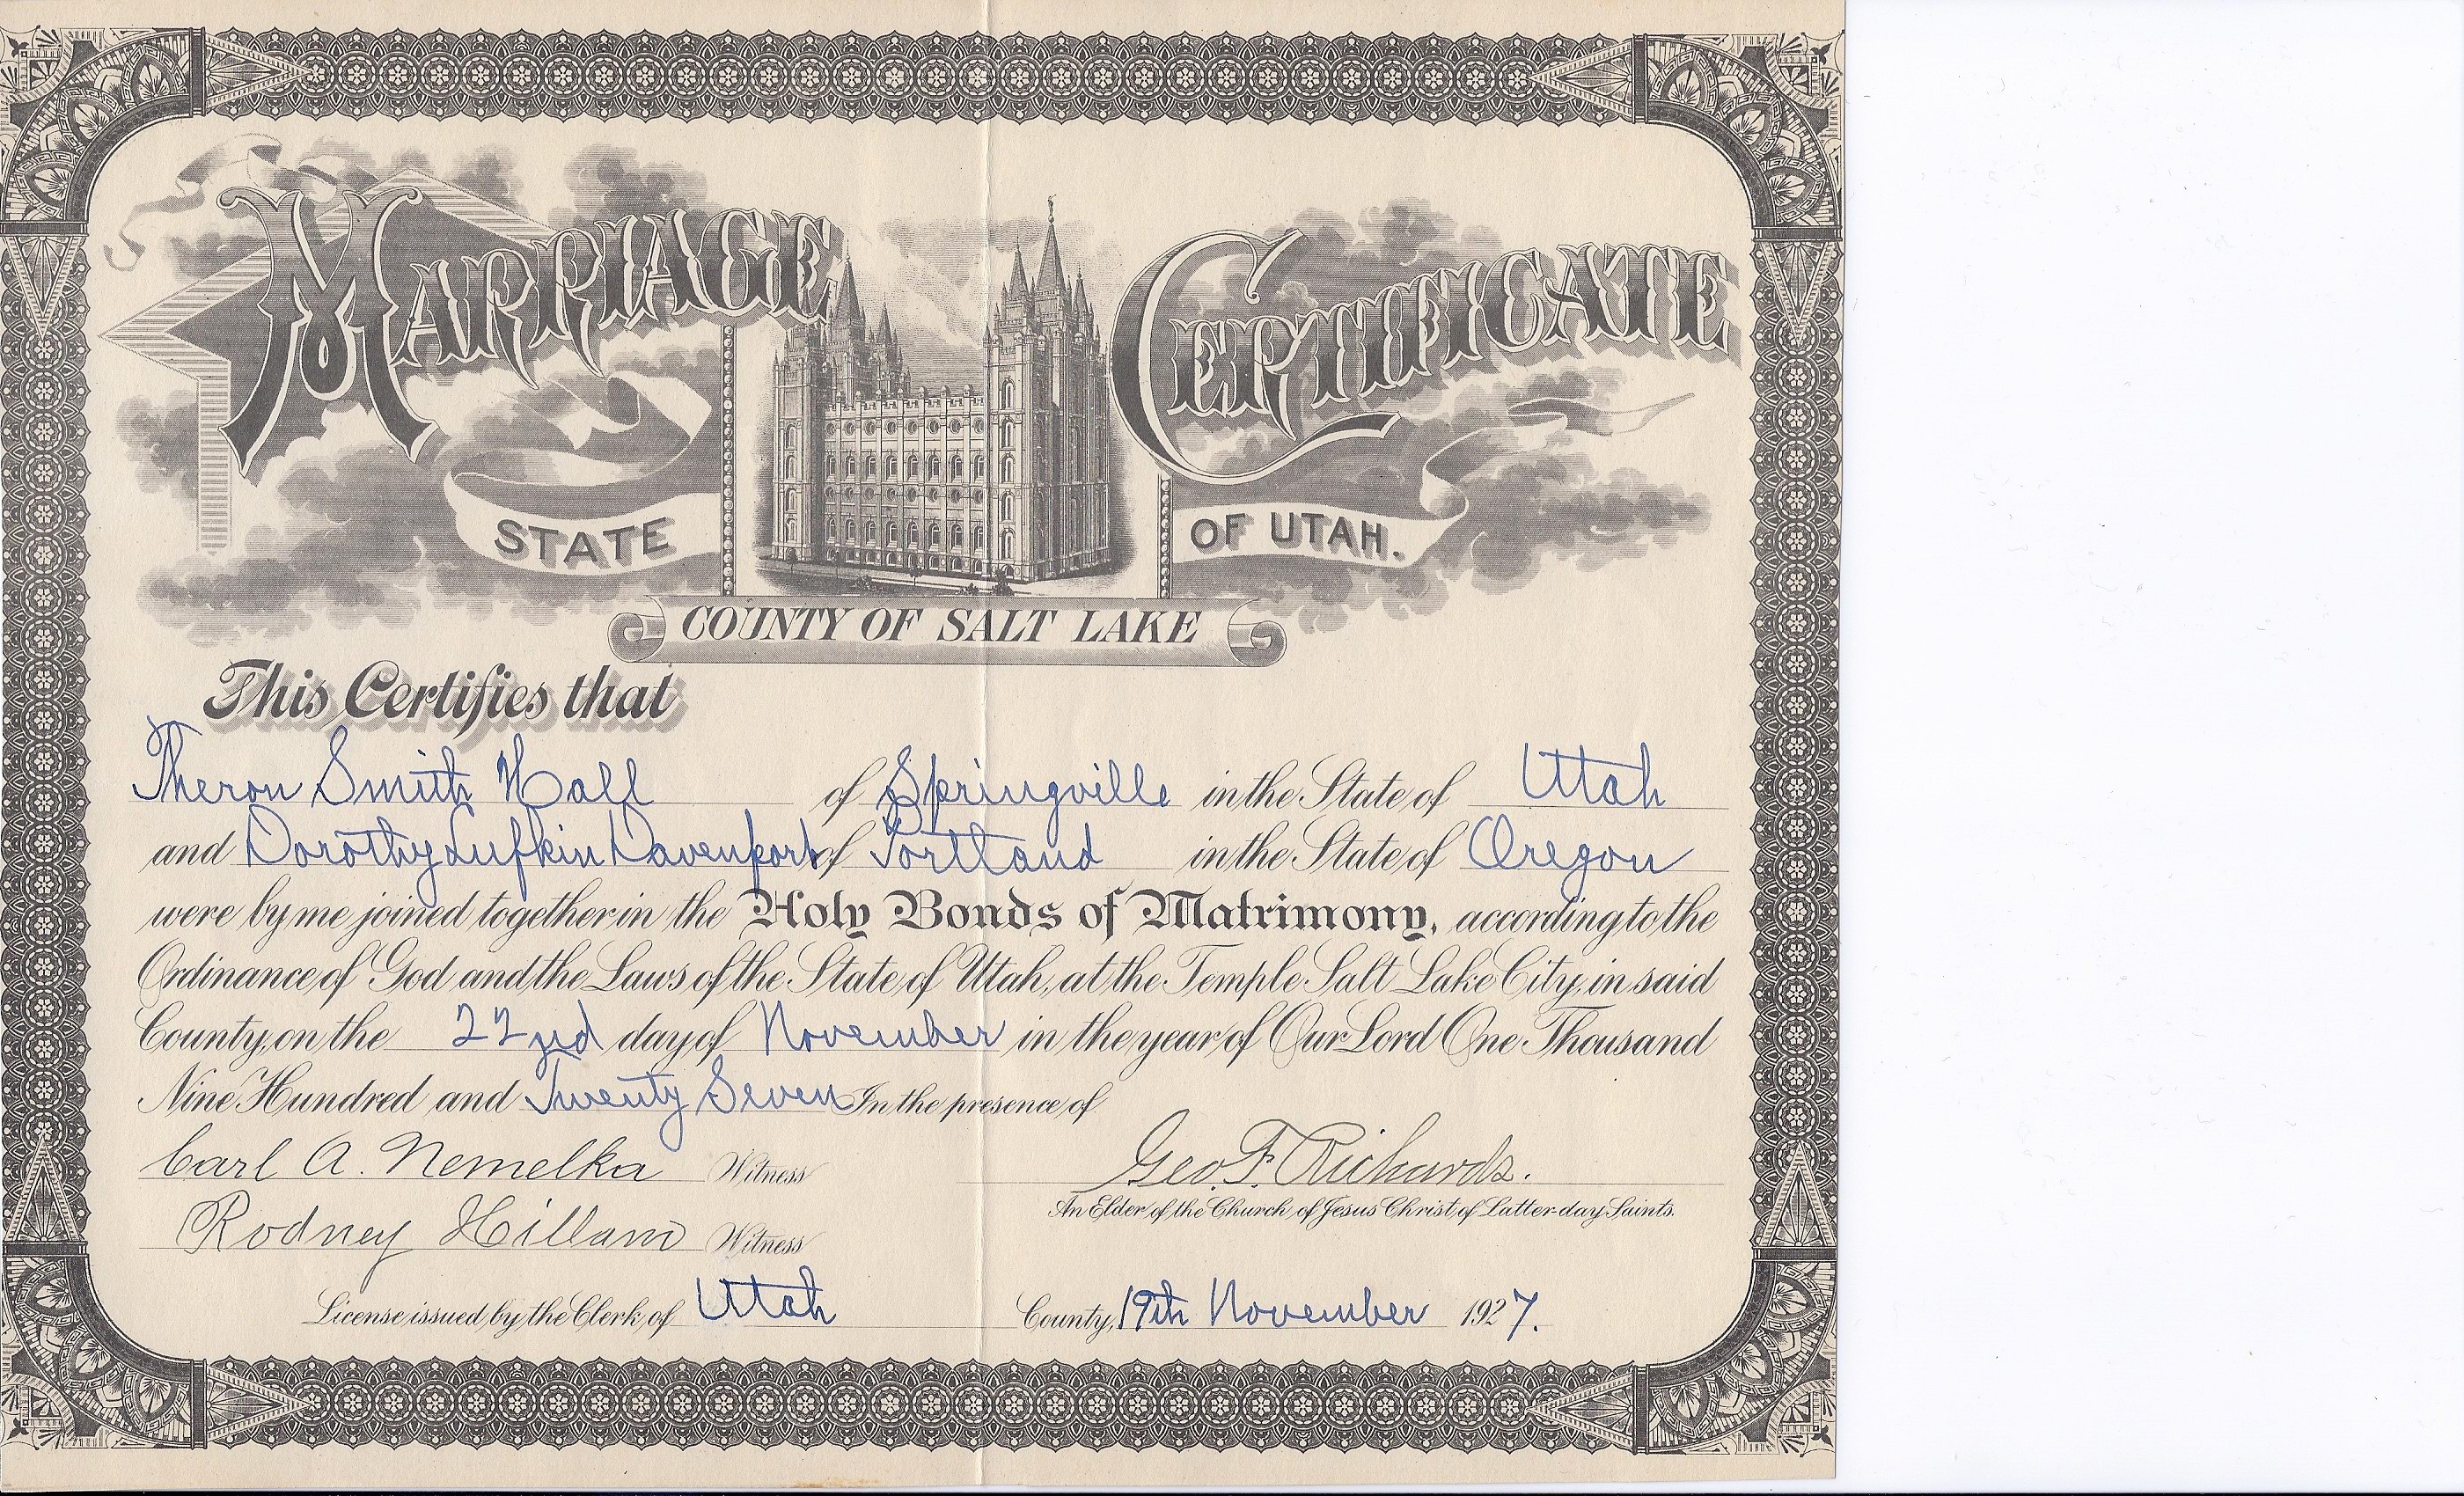 MARRIAGE CERTIFICATE
STATE OF UTAH.
COUNTY OF SALT LAKE
This Certifies that
Theron Smith Hall of Springville in the State of Utah
and Dorothy Lufkin Davenport of Portland in the State of Oregon
were by me joined together in the Holy Bonds of Matrimony, according to the
Ordinance of God and the Laws of the State of Utah, at the Temple Salt Lake City, in said
County, on the 22nd day of November in the year of Our Lord One Thousand
Nine Hundred and Twenty Seven In the presence of
Carl A. Nemelka Witness
Geo. F. Richards.
An Elder of the Church of Jesus Christ of Latter-day Saints.
Rodney Hillam Witness
License issued by the Clerk of Utah County, 19th November 1927.